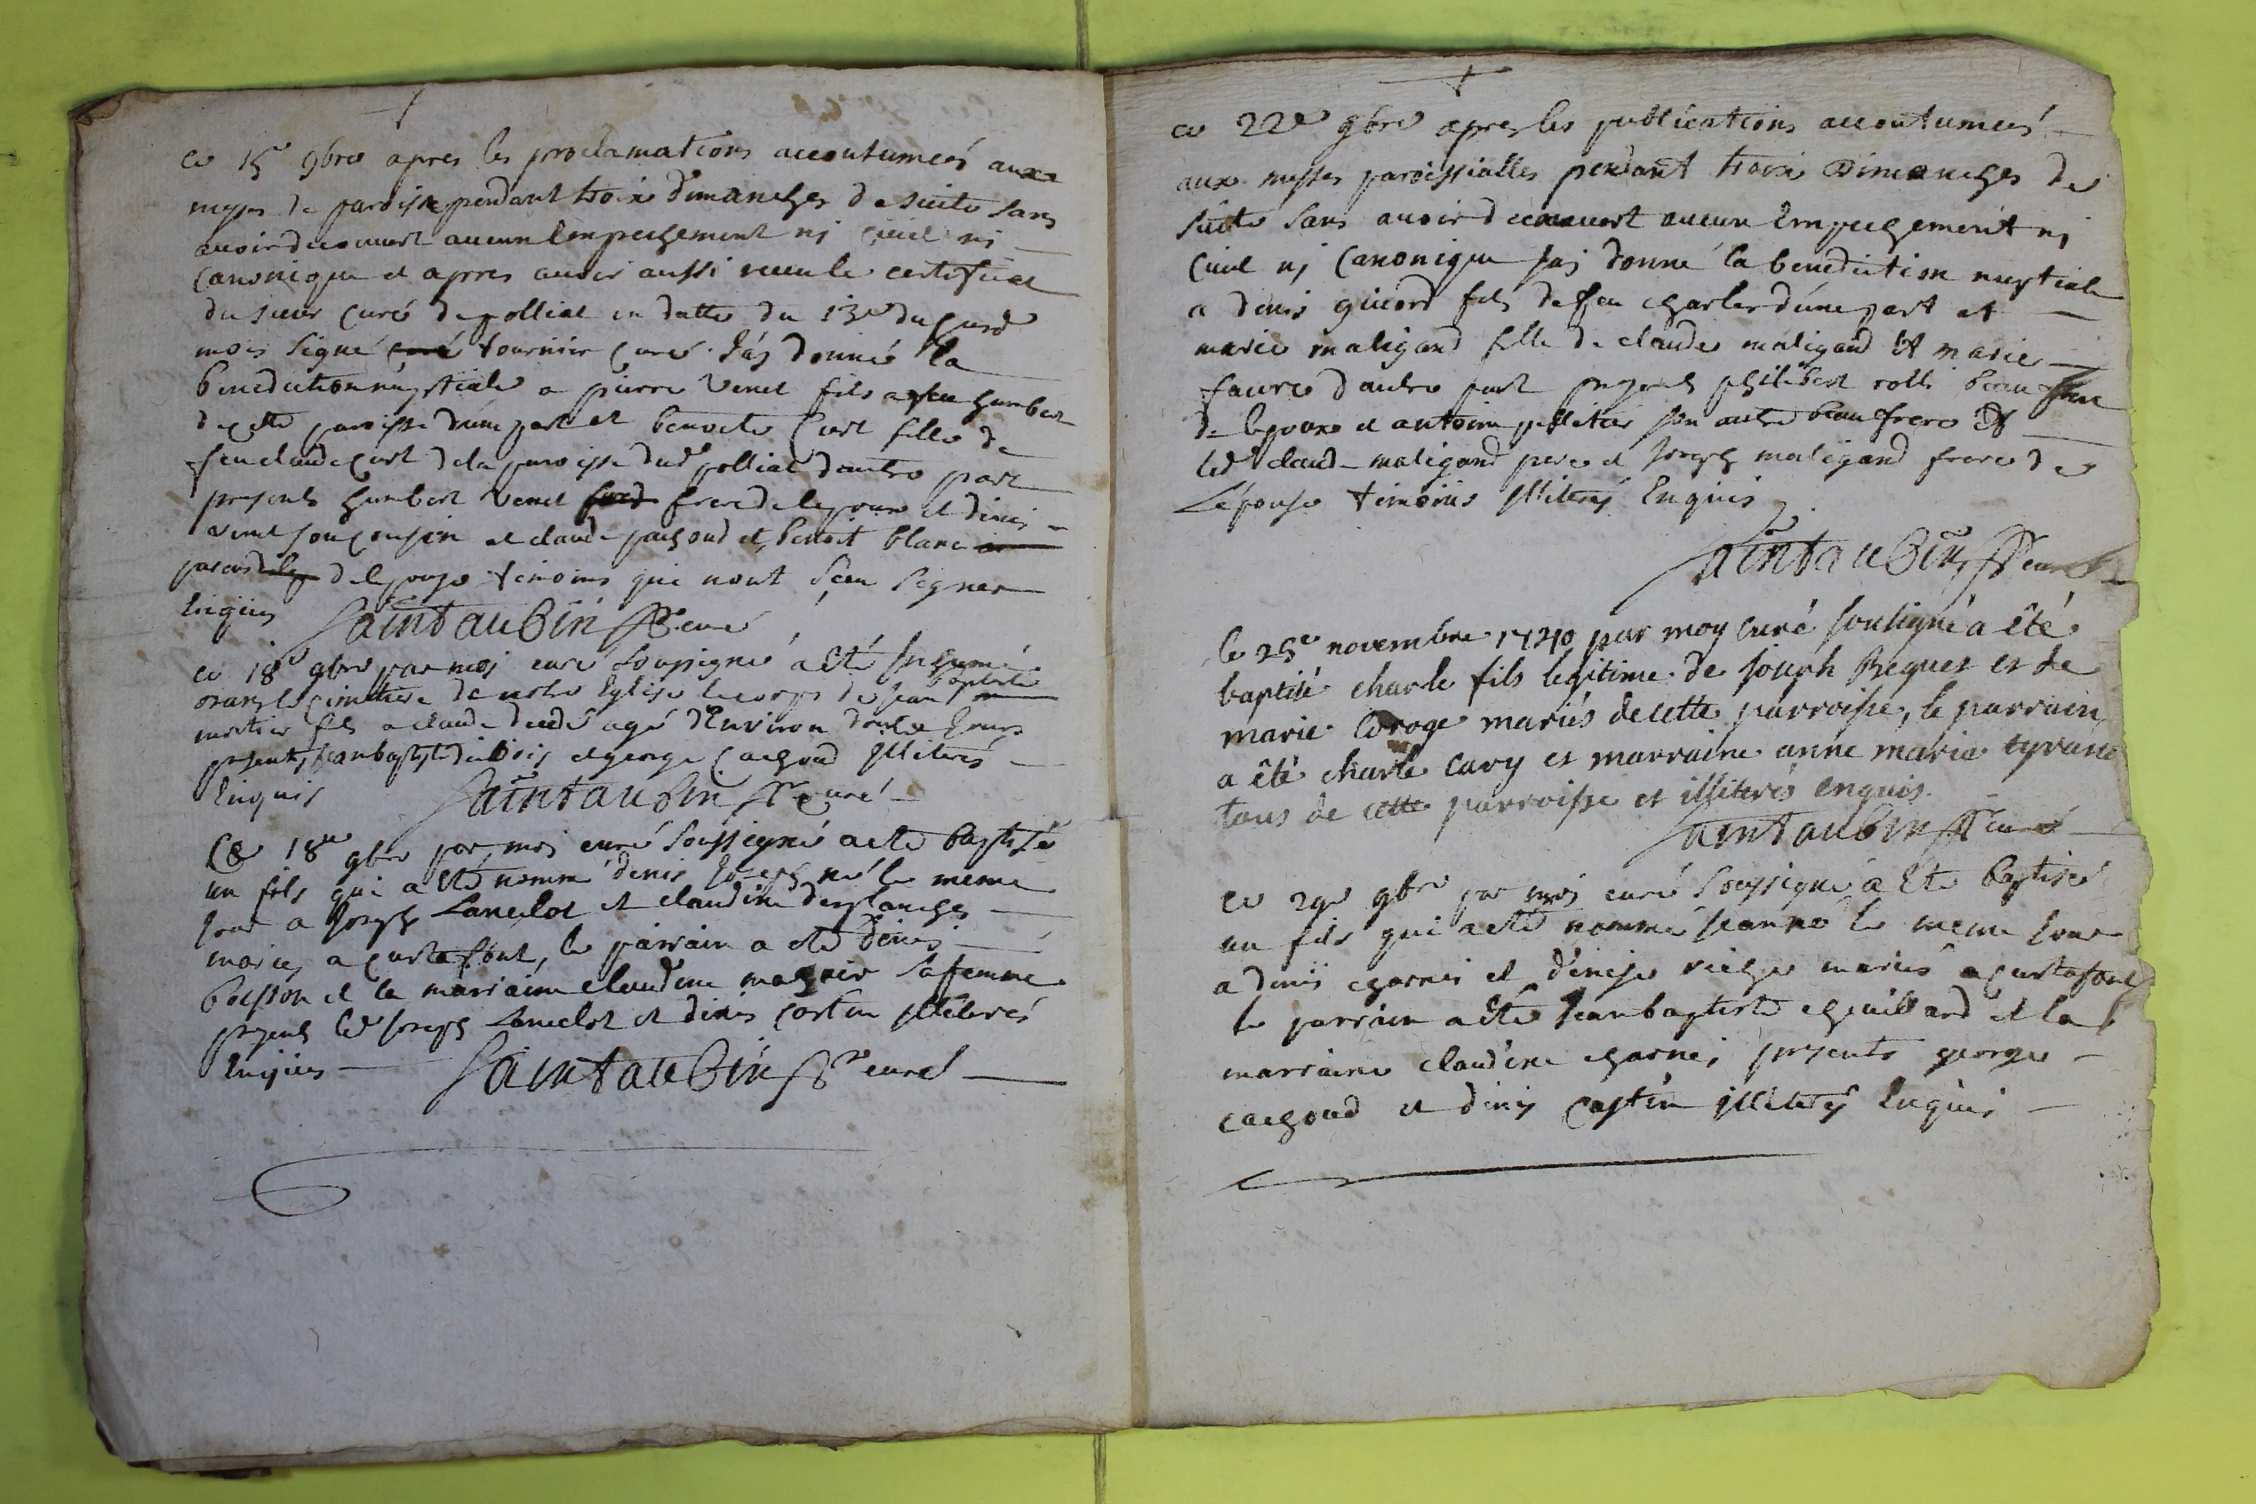 ce 15e 9bre apres les proclamations accoutumees aux
messes de paroisse pendant trois dimanches de suite sans
avoir decouvert aucun Empechement ni civil ni
Canonique et apres avoir aussi receu le certificat
du sieur curé de polliat en datte du 13e du
mois signé tournier curé j'aj donné la
benediction nuptiale a pierre Venet fils a feu humbert
de cette paroisse d'une part et benoite Curt fille de
feu claude curt de la paroisse dud polliat d'autre part
presents humbert Venet frere de lepoux et denis
venet son cousin et claude pachoud et benoit blanc
parens de lepouse temoins qui nont sceu signer
Enquis Saintaubin curé
ce 18e 9bre par moi curé soussigné a eté inhumé
dans le cimetiere de notre Eglise le corps de jean baptiste
mortier fils a claude decedé agé d'Environ douze heures
presents jean baptiste dubois et george cachoud illiterés
Enquis Saintaubin curé
Ce 18e 9bre par moi curé soussigné a eté baptisé
un fils qui a eté nommé denis joseph né le meme
jour a joseph Lancelot et claudine desplanches
mariés a curtafont, le parrain a eté denis
boisson et la marraine claudine sa femme
presents led joseph Lancelot et denis costin illiterés
Enquis Saintaubin curé
ce 22e 9bre apres les publications accoutumees
aux messes paroissialles pendant trois Dimanches de
suite sans avoir decouvert aucun Empechement ni
Civil nj Canonique jaj donné la benediction nuptiale
a denis guicord fils de feu charles d'une part et
marie maligand fille de claude maligand et marie
faure d'autre part presents philibert rolli beau frere
de lepoux et antoine pelletier son autre beau frere et
led claude maligand pere et joseph maligand frere de
Lépouse temoins illiterés Enquis
Saintaubin curé
le 25e novembre 1740 par moy curé soussigné a été
baptisé charle fils legitime de joseph Reguet et de
marie mariés de cette parroisse, le parrain
a été charle cavy et marraine anne marie tyrand
tous de cette parroisse et illiterés enquis.
Saintaubin curé
ce 29e 9bre par moi curé soussigné a eté baptisé
un fils qui a eté nommé jean né le meme jour
a denis charnei et denise mariés a curtafont
le parrain a eté jean baptiste chevillard et la
marraine claudine charnei presents george
cachoud et denis costin illiterés Enquis